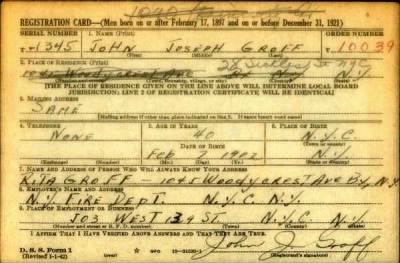 REGISTRATION CARD—(Men born on or after February 17, 1897 and on or before December 31, 1921)
SERIAL NUMBER 1. NAME (Print) ORDER NUMBER
T-1345 JOHN JOSEPH GROFF 10039
(First) (Middle) (Last)
2. PLACE OF RESIDENCE (Print)
1045 Woodycrest N.Y.
(Number and street) (Town, township, village, or city) (County) (State)
[THE PLACE OF RESIDENCE GIVEN ON THE LINE ABOVE WILL DETERMINE LOCAL BOARD
JURISDICTION; LINE 2 OF REGISTRATION CERTIFICATE WILL BE IDENTICAL]
3. MAILING ADDRESS
SAME
[Mailing address if other than place indicated on line 2. If same insert word same]
4. TELEPHONE 5. AGE IN YEARS 6. PLACE OF BIRTH
NONE 40 N.Y.C.
DATE OF BIRTH
FEB 7 1902 N.Y.
7. NAME AND ADDRESS OF PERSON WHO WILL ALWAYS KNOW YOUR ADDRESS
RITA GROFF — 1045 WOODYCREST AVE BX, N.Y.
8. EMPLOYER'S NAME AND ADDRESS
N.Y. FIRE DEPT. N.Y.C N.Y.
9. PLACE OF EMPLOYMENT OR BUSINESS
503 WEST 139 ST. N.Y.C. N.Y.
(Number and street or R. F. D. number) (Town) (County) (State)
I AFFIRM THAT I HAVE VERIFIED ABOVE ANSWERS AND THAT THEY ARE TRUE.
D. S. S. Form 1
(Revised 1-1-42) (over) John J. Groff